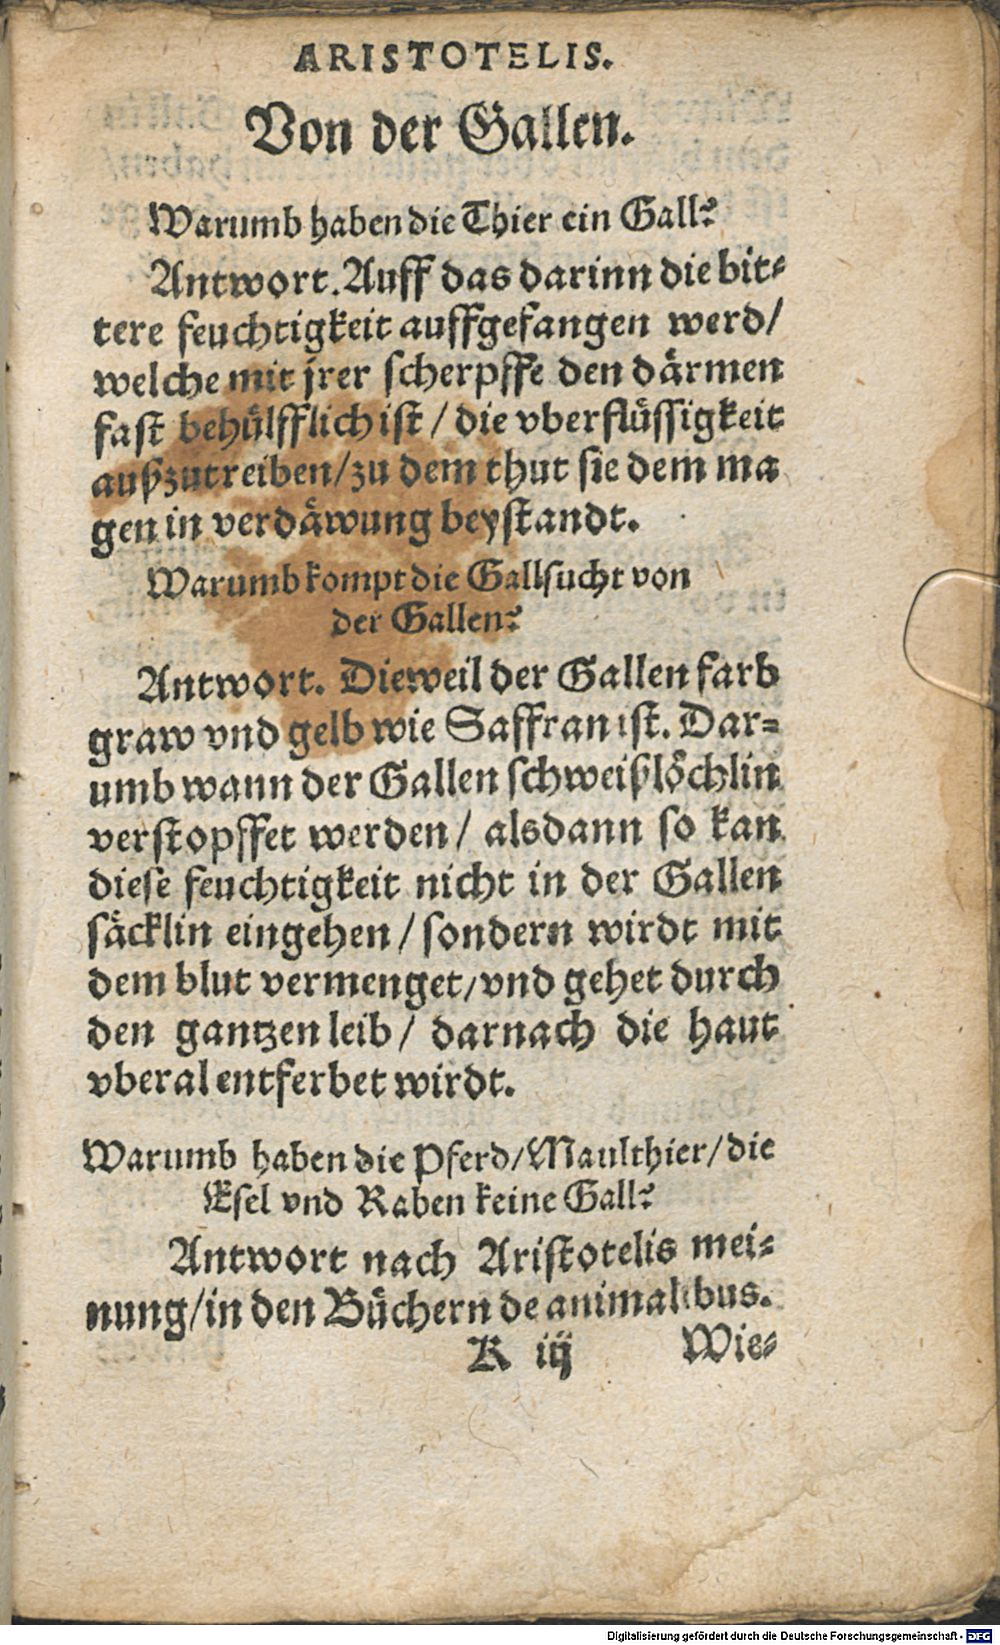 ARISTOTELIS.
Von der Gallen.
Warumb haben die Thier ein Gall?
Antwort. Auff das darinn die bit⸗
tere feuchtigkeit auffgefangen werd/
welche mit jrer scherpffe den därmen
fast behülfflich ist / die vberflüssigkeit
außzutreiben/zu dem thut sie dem ma
gen in verdäwung beystandt.
Warumb kompt die Gallsucht von
der Gallen?
Antwort. Dieweil der Gallen farb
graw vnd gelb wie Saffran ist. Dar⸗
umb wann der Gallen schweißlöchlin
verstopffet werden / alsdann so kan
diese feuchtigkeit nicht in der Gallen
säcklin eingehen / sondern wirdt mit
dem blut vermenget/vnd gehet durch
den gantzen leib / darnach die haut
vberal entferbet wirdt.
Warumb haben die Pferd/Maulthier/die
Esel vnd Raben keine Gall?
Antwort nach Aristotelis mei⸗
nung/in den Büchern de animalibus.
K iij Wie⸗
Digitalisierung gefördert durch die Deutsche Forschungsgemeinschaft - DFG